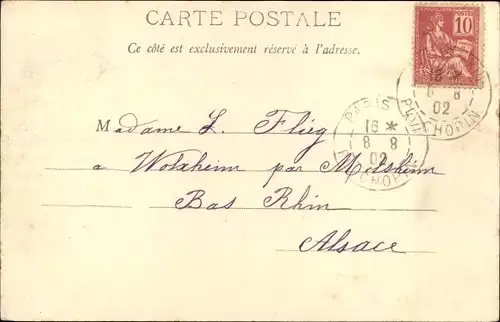 CARTE POSTALE
Ce côté est exclusivement réservé à l'adresse.
10
PARIS
16 *
8 8
02
PL. CHOPIN
8
02
PL. CHOPIN
Madame L. Flieg
a Wolxheim par Molsheim
Bas Rhin
Alsace